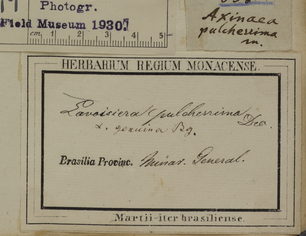 Photogr.
Field Museum 1930.
cm 1 2 3 4 5
Axinaea
pulcherrima
m.
HERBARIUM REGIUM MONACENSE.
Lavoisiera pulcherrima Dec.
α. genuina Bg.
Brasilia Provinc. Minas General.
Martii iter brasiliense.